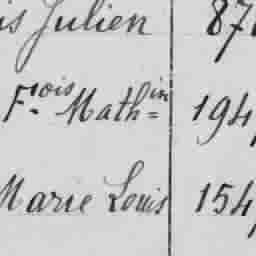 is Julien 87
F.ois Math=in 194
Marie Louis 154